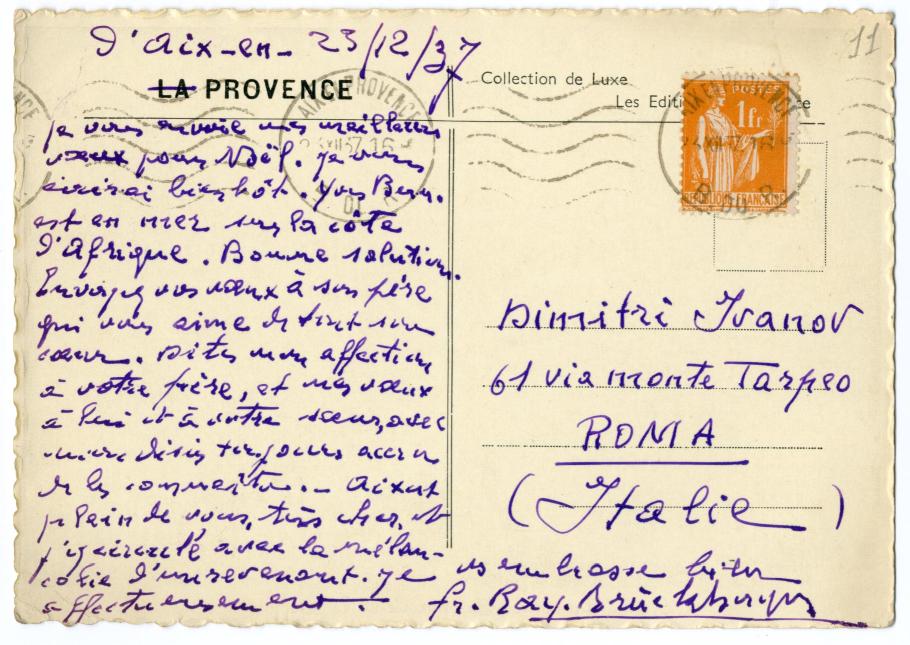 D'Aix-en- 23/12/37
LA PROVENCE
11
Collection de Luxe
Les Editi ce
AIX EN PROVENCE
POSTES
1 fr
REPUBLIQUE FRANÇAISE
je vous envoie mes meilleurs
vœux pour Noël. Je vous
écrirai bientôt. Yves Bern.
est en mer sur la côte
d'Afrique. Bonne solution.
Envoyez vos vœux à son père
qui vous aime de tout son
cœur. Dites mon affection
à votre frère, et mes vœux
à lui et à votre sœur, avec
mon désir toujours accru
de les connaître. - Aix est
plein de vous, très cher, et
j'y ai circulé avec la mélan-
colie d'un revenant. Je vs embrasse bien
affectueusement. fr. Ray. Brückberger
Dimitri Ivanov
61 via monte Tarpeo
ROMA
(Italie)